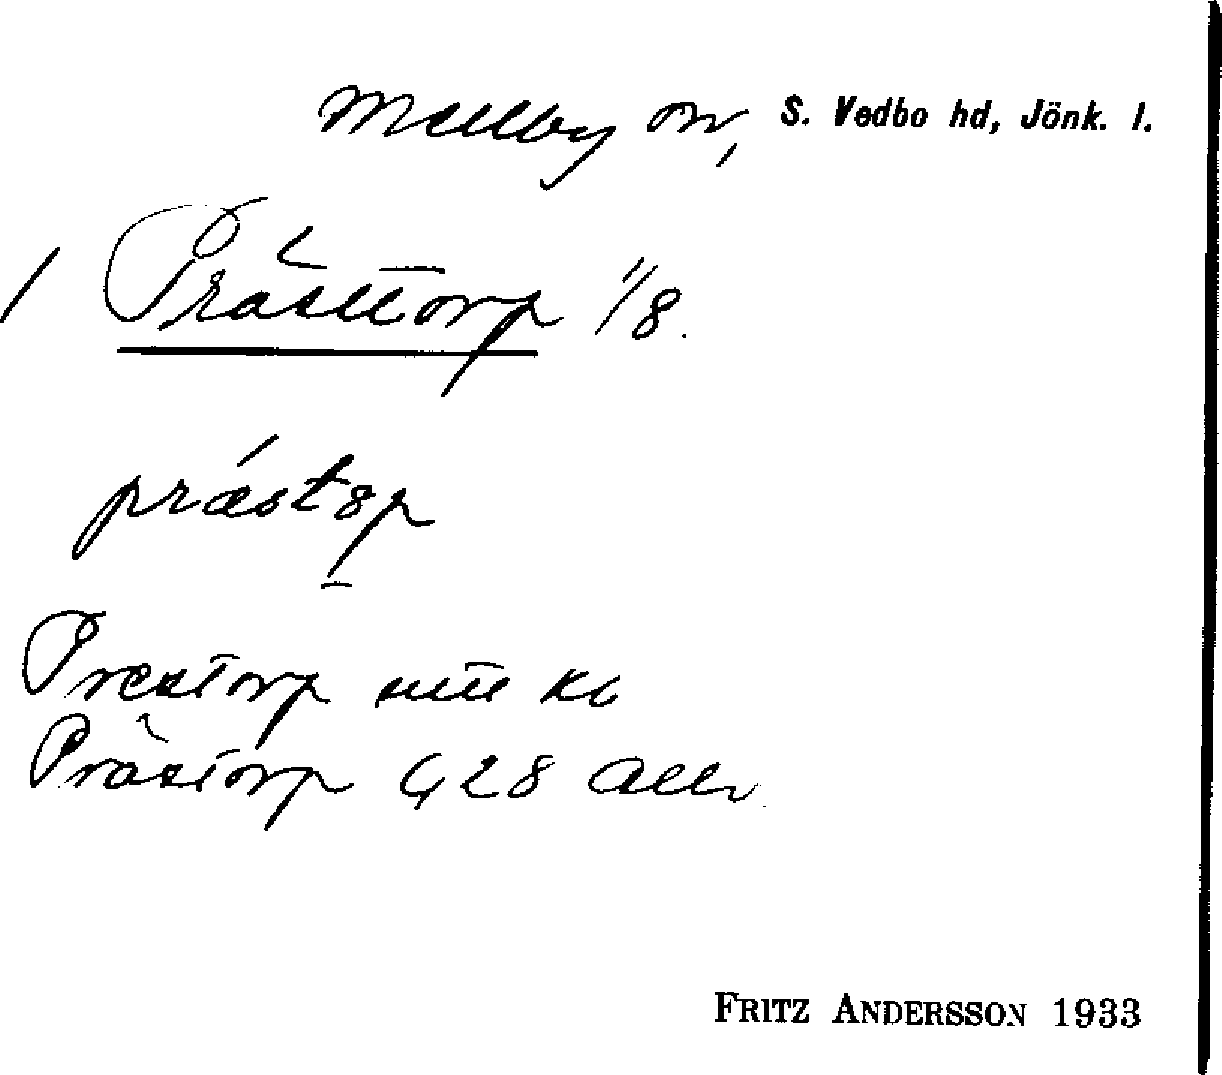 Mellby sn, S. Vedbo hd, Jönk. l.
/ Prästtorp 1/8.
præstop
Prestorp
Prästorp G 28 Allm
FRITZ ANDERSSON 1933